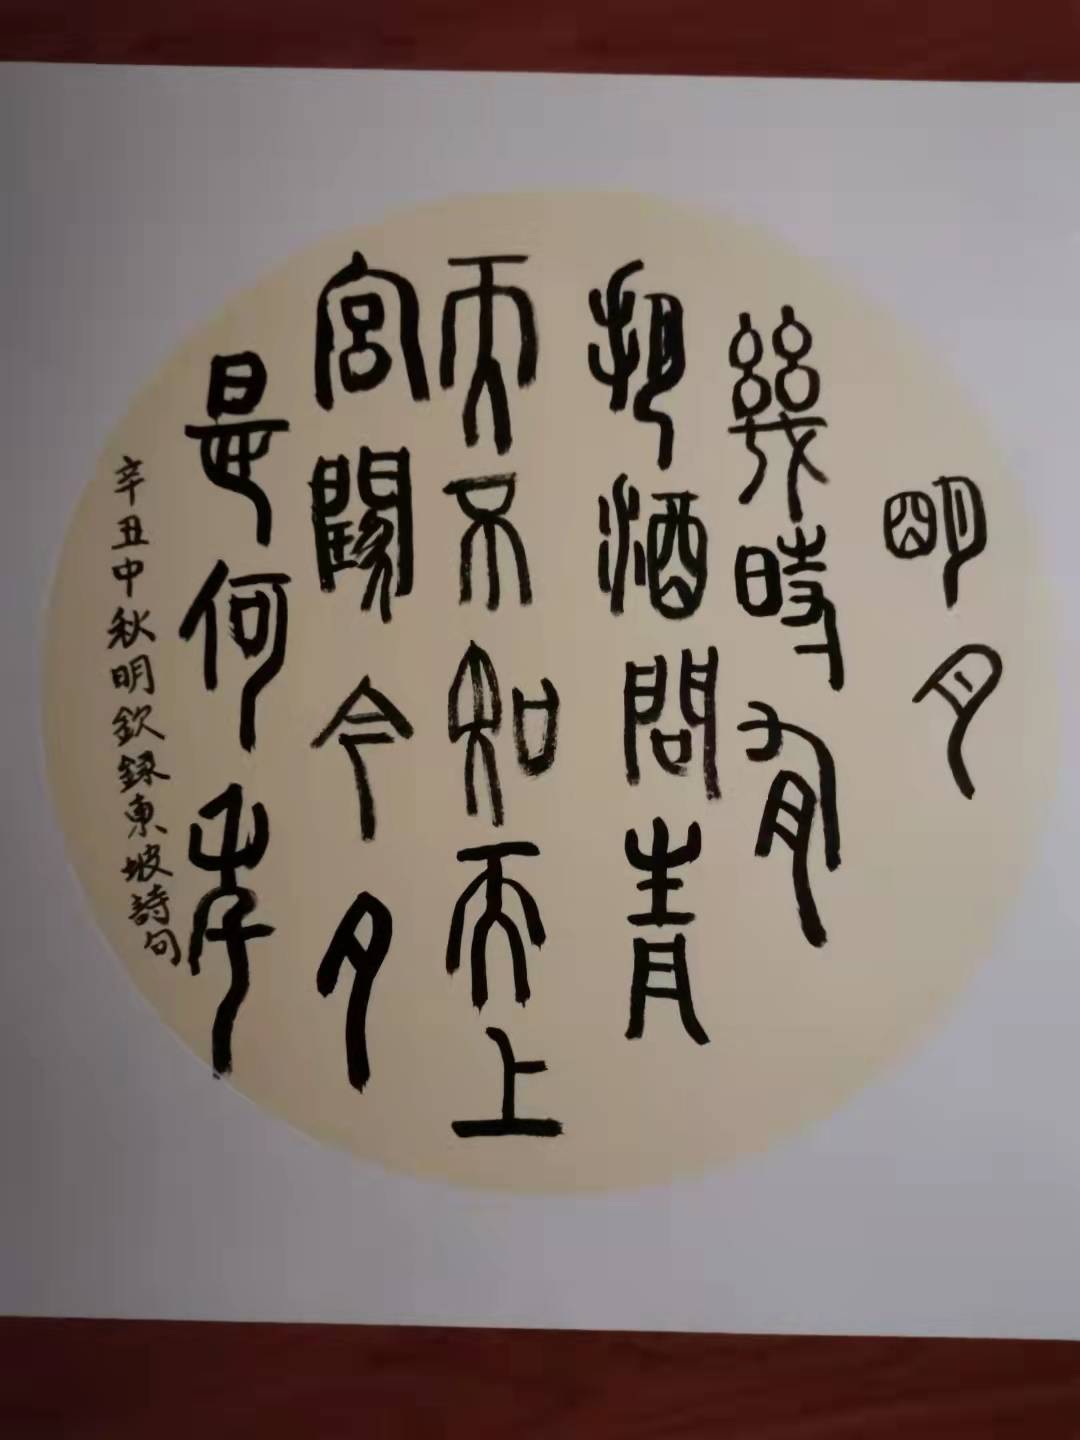 明月
幾時有
把酒問青
天不知天上
宮闕今夕
是何年
辛丑中秋明欽録東坡詩句